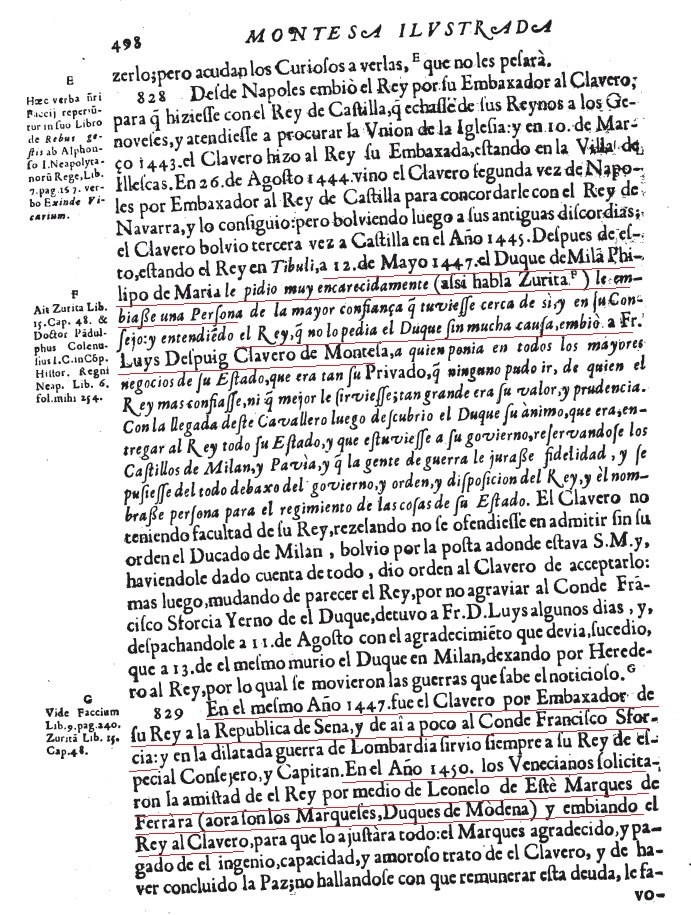 498
MONTESA ILVSTRADA
zerlo; pero acudan los Curiosos a verlas, E que no les pesarà.
828 Desde Napoles embiò el Rey por su Embaxador al Clavero;
para q̃ hiziesse con el Rey de Castilla, q̃ echasse de sus Reynos a los Ge-
noveses, y atendiesse a procurar la Vnion de la Iglesia: y en 10. de Mar-
ço 1443. el Clavero hizo al Rey su Embaxada, estando en la Villa de
Illescas. En 26. de Agosto 1444. vino el Clavero segunda vez de Napo-
les por Embaxador al Rey de Castilla para concordarle con el Rey de
Navarra, y lo consiguio: pero bolviendo luego a sus antiguas discordias;
el Clavero bolvio tercera vez a Castilla en el Año 1445. Despues de es-
to, estando el Rey en Tibuli, a 12. de Mayo 1447. el Duque de Milã Phi-
lipo de Maria le pidio muy encarecidamente (assi habla Zurita. F) le em-
biasse una Persona de la mayor confiança q̃ tuviesse cerca de sì, y en su Con-
sejo: y entendiẽdo el Rey, q̃ no lo pedia el Duque sin mucha causa, embiò a Fr.
Luys Despuig Clavero de Montesa, a quien ponia en todos los mayores
negocios de su Estado, que era tan su Privado, q̃ ninguno pudo ir, de quien el
Rey mas confiasse, ni q̃ mejor le sirviesse; tan grande era su valor, y prudencia.
Con la llegada deste Cavallero luego descubrio el Duque su ànimo, que era, en-
tregar al Rey todo su Estado, y que estuviesse a su govierno, reservandose los
Castillos de Milan, y Pavìa, y q̃ la gente de guerra le jurasse fidelidad, y se
pusiesse del todo debaxo del govierno, y orden, y disposicion del Rey, y èl nom-
brasse persona para el regimiento de las cosas de su Estado. El Clavero no
teniendo facultad de su Rey, rezelando no se ofendiesse en admitir sin su
orden el Ducado de Milan, bolvio por la posta adonde estava S.M. y,
haviendole dado cuenta de todo, dio orden al Clavero de acceptarlo:
mas luego, mudando de parecer el Rey, por no agraviar al Conde Frã-
cisco Sforcia Yerno de el Duque, detuvo a Fr. D. Luys algunos dias, y,
despachandole a 11. de Agosto con el agradecimiẽto que devia, sucedio,
que a 13. de el mesmo murio el Duque en Milan, dexando por Herede-
ro al Rey, por lo qual se movieron las guerras que sabe el noticioso. G
829 En el mesmo Año 1447. fue el Clavero por Embaxador de
su Rey a la Republica de Sena, y de aì a poco al Conde Francisco Sfor-
cia: y en la dilatada guerra de Lombardia sirvio siempre a su Rey de es-
pecial Consejero, y Capitan. En el Año 1450. los Venecianos solicita-
ron la amistad de el Rey por medio de Leonelo de Estè Marques de
Ferràra (aora son los Marqueses, Duques de Mòdena) y embiando el
Rey al Clavero, para que lo ajustàra todo: el Marques agradecido, y pa-
gado de el ingenio, capacidad, y amoroso trato de el Clavero, y de ha-
ver concluido la Paz; no hallandose con que remunerar esta deuda, le fa-
vo-
E
Hæc verba ñri
Faccij reperiũ-
tur in suo Libro
de Rebus ge-
stis ab Alphon-
so I. Neapolyta-
norũ Rege, Lib.
7. pag. 157. ver-
bo Exinde Vi-
carium.
F
Ait Zurita Lib.
15. Cap. 48. &
Doctor Pãdul-
phus Colenu-
sius I.C. in Cõp.
Histor. Regni
Neap. Lib. 6.
fol. mihi 254.
G
Vide Faccium
Lib. 9. pag. 240.
Zuritã Lib. 15.
Cap. 48.